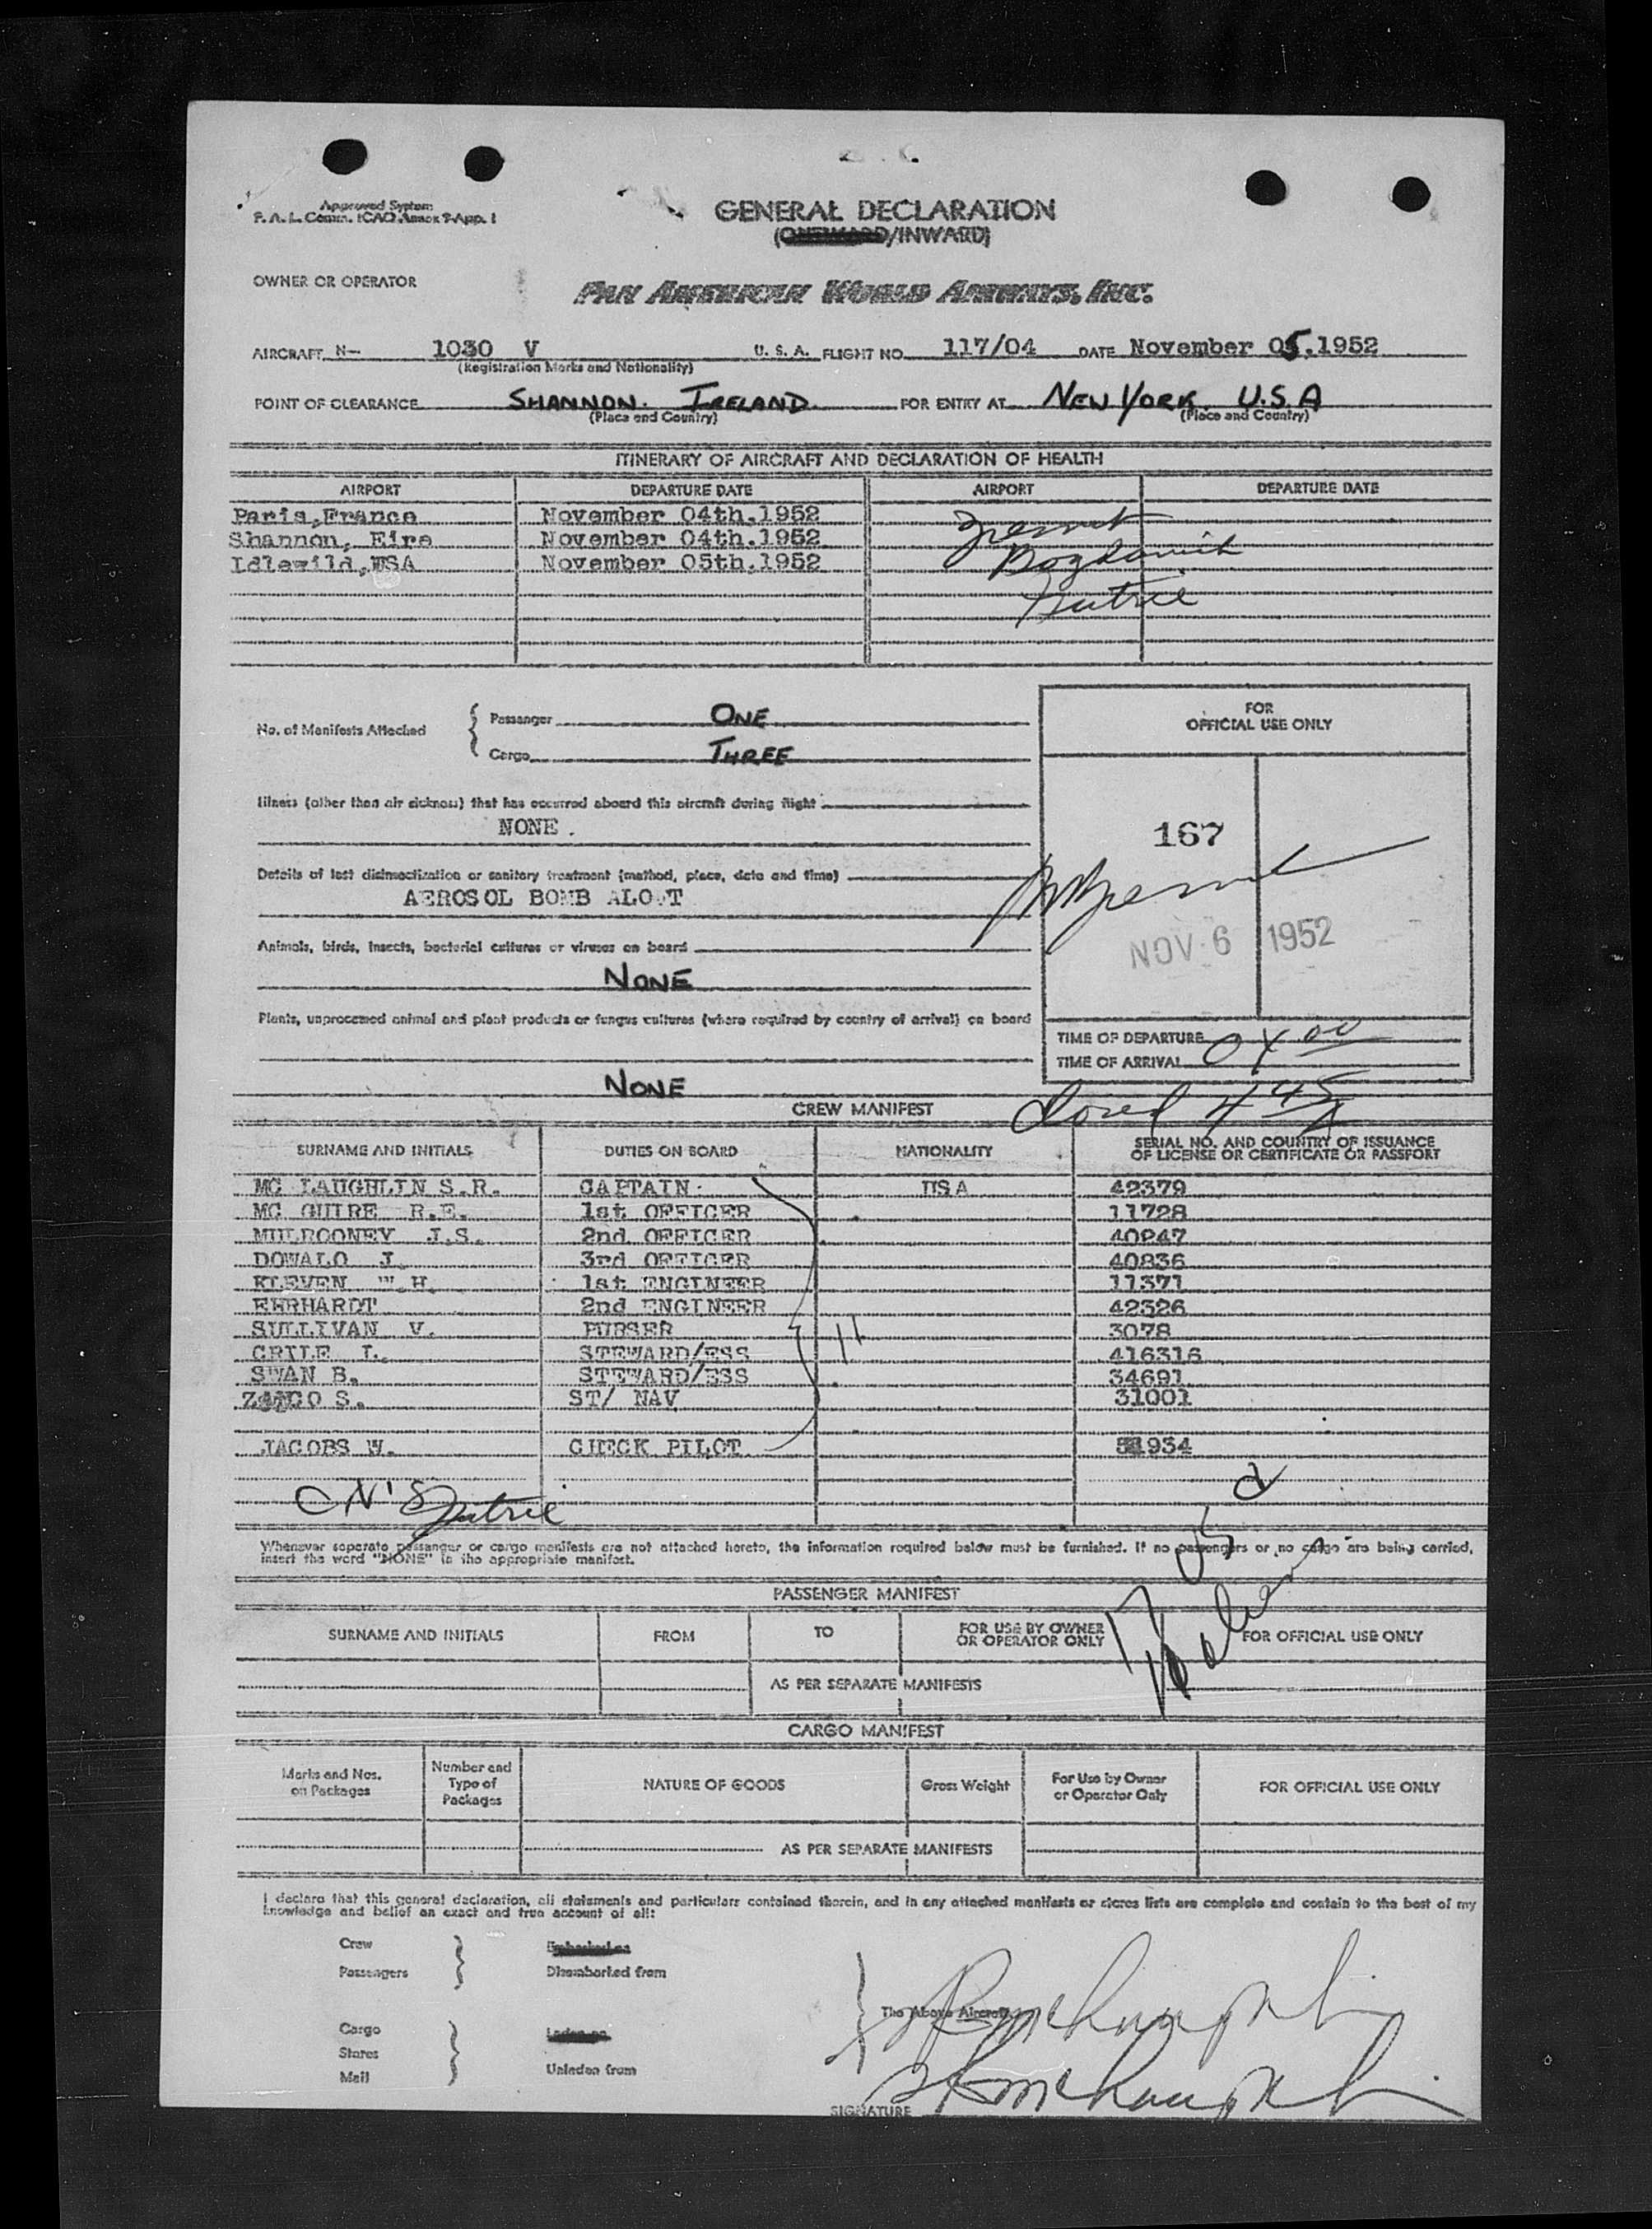 Approved System
F. A. L. Comm. ICAO Annex 9-App. 1
GENERAL DECLARATION
/INWARD)
OWNER OR OPERATOR
PAN AMERICAN WORLD AIRWAYS, INC.
AIRCRAFT N— 1030 V U. S. A. FLIGHT NO. 117/04 DATE November 05,1952
(Registration Marks and Nationality)
POINT OF CLEARANCE SHANNON. IRELAND. FOR ENTRY AT NEW YORK U.S.A
(Place and Country) (Place and Country)
ITINERARY OF AIRCRAFT AND DECLARATION OF HEALTH
AIRPORT DEPARTURE DATE AIRPORT DEPARTURE DATE
Paris,France November 04th.1952
Shannon, Eire November 04th.1952
Idlewild,USA November 05th.1952
No. of Manifests Attached { Passenger ONE
Cargo THREE
FOR
OFFICIAL USE ONLY
Illness (other than air sickness) that has occurred aboard this aircraft during flight
NONE .
167
Details of last disinsectization or sanitary treatment (method, place, date and time)
AEROSOL BOMB ALOFT
NOV 6 1952
Animals, birds, insects, bacterial cultures or viruses on board
NONE
Plants, unprocessed animal and plant products or fungus cultures (where required by country of arrival) on board
NONE
TIME OF DEPARTURE
TIME OF ARRIVAL 04 00
CREW MANIFEST
SURNAME AND INITIALS DUTIES ON BOARD NATIONALITY SERIAL NO. AND COUNTRY OF ISSUANCE
OF LICENSE OR CERTIFICATE OR PASSPORT
MC LAUGHLIN S.R. CAPTAIN USA 42379
MC GUIRE R.E. 1st OFFICER 11728
MULROONEY J.S. 2nd OFFICER 40247
DOWALO J. 3rd OFFICER 40836
KLEVEN W.H. 1st ENGINEER 11371
EHRHARDT 2nd ENGINEER 42326
SULLIVAN V. PURSER 3078
CRILE L. STEWARD/ESS 416316
SWAN B. STEWARD/ESS 34691
S. ST/ NAV 31001
11
JACOBS W. CHECK PILOT 934
Whenever separate passenger or cargo manifests are not attached hereto, the information required below must be furnished. If no passengers or no cargo are being carried,
insert the word "NONE" in the appropriate manifest.
PASSENGER MANIFEST
SURNAME AND INITIALS FROM TO FOR USE BY OWNER
OR OPERATOR ONLY FOR OFFICIAL USE ONLY
AS PER SEPARATE MANIFESTS
CARGO MANIFEST
Marks and Nos.
on Packages Number and
Type of
Packages NATURE OF GOODS Gross Weight For Use by Owner
or Operator Only FOR OFFICIAL USE ONLY
AS PER SEPARATE MANIFESTS
I declare that this general declaration, all statements and particulars contained therein, and in any attached manifests or stores lists are complete and contain to the best of my
knowledge and belief an exact and true account of all:
Crew
Passengers Disembarked from
The Above Aircraft
Cargo
Stores
Mail Unladen from
SIGNATURE